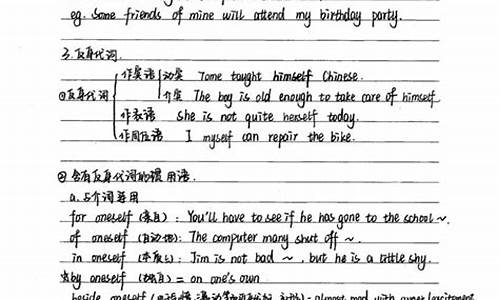 eg. Some friends of mine will attend my birthday party.
3. 反身代词.
作宾语 动宾 Tome taught himself Chinese.
①反身代词 介宾 The boy is old enough to take care of himself.
作表语 She is not quite herself today.
作同位语 I myself can repair the bike.
② 含有反身代词的惯用语.
a. 与介词连用
for oneself (亲自): You'll have to see if he has gone to the school ~.
of oneself (自动地): The computer many shut off ~.
in oneself (本质上): Jim is not bad ~, but he is a little shy.
by oneself = on one's own
beside oneself almost mad with